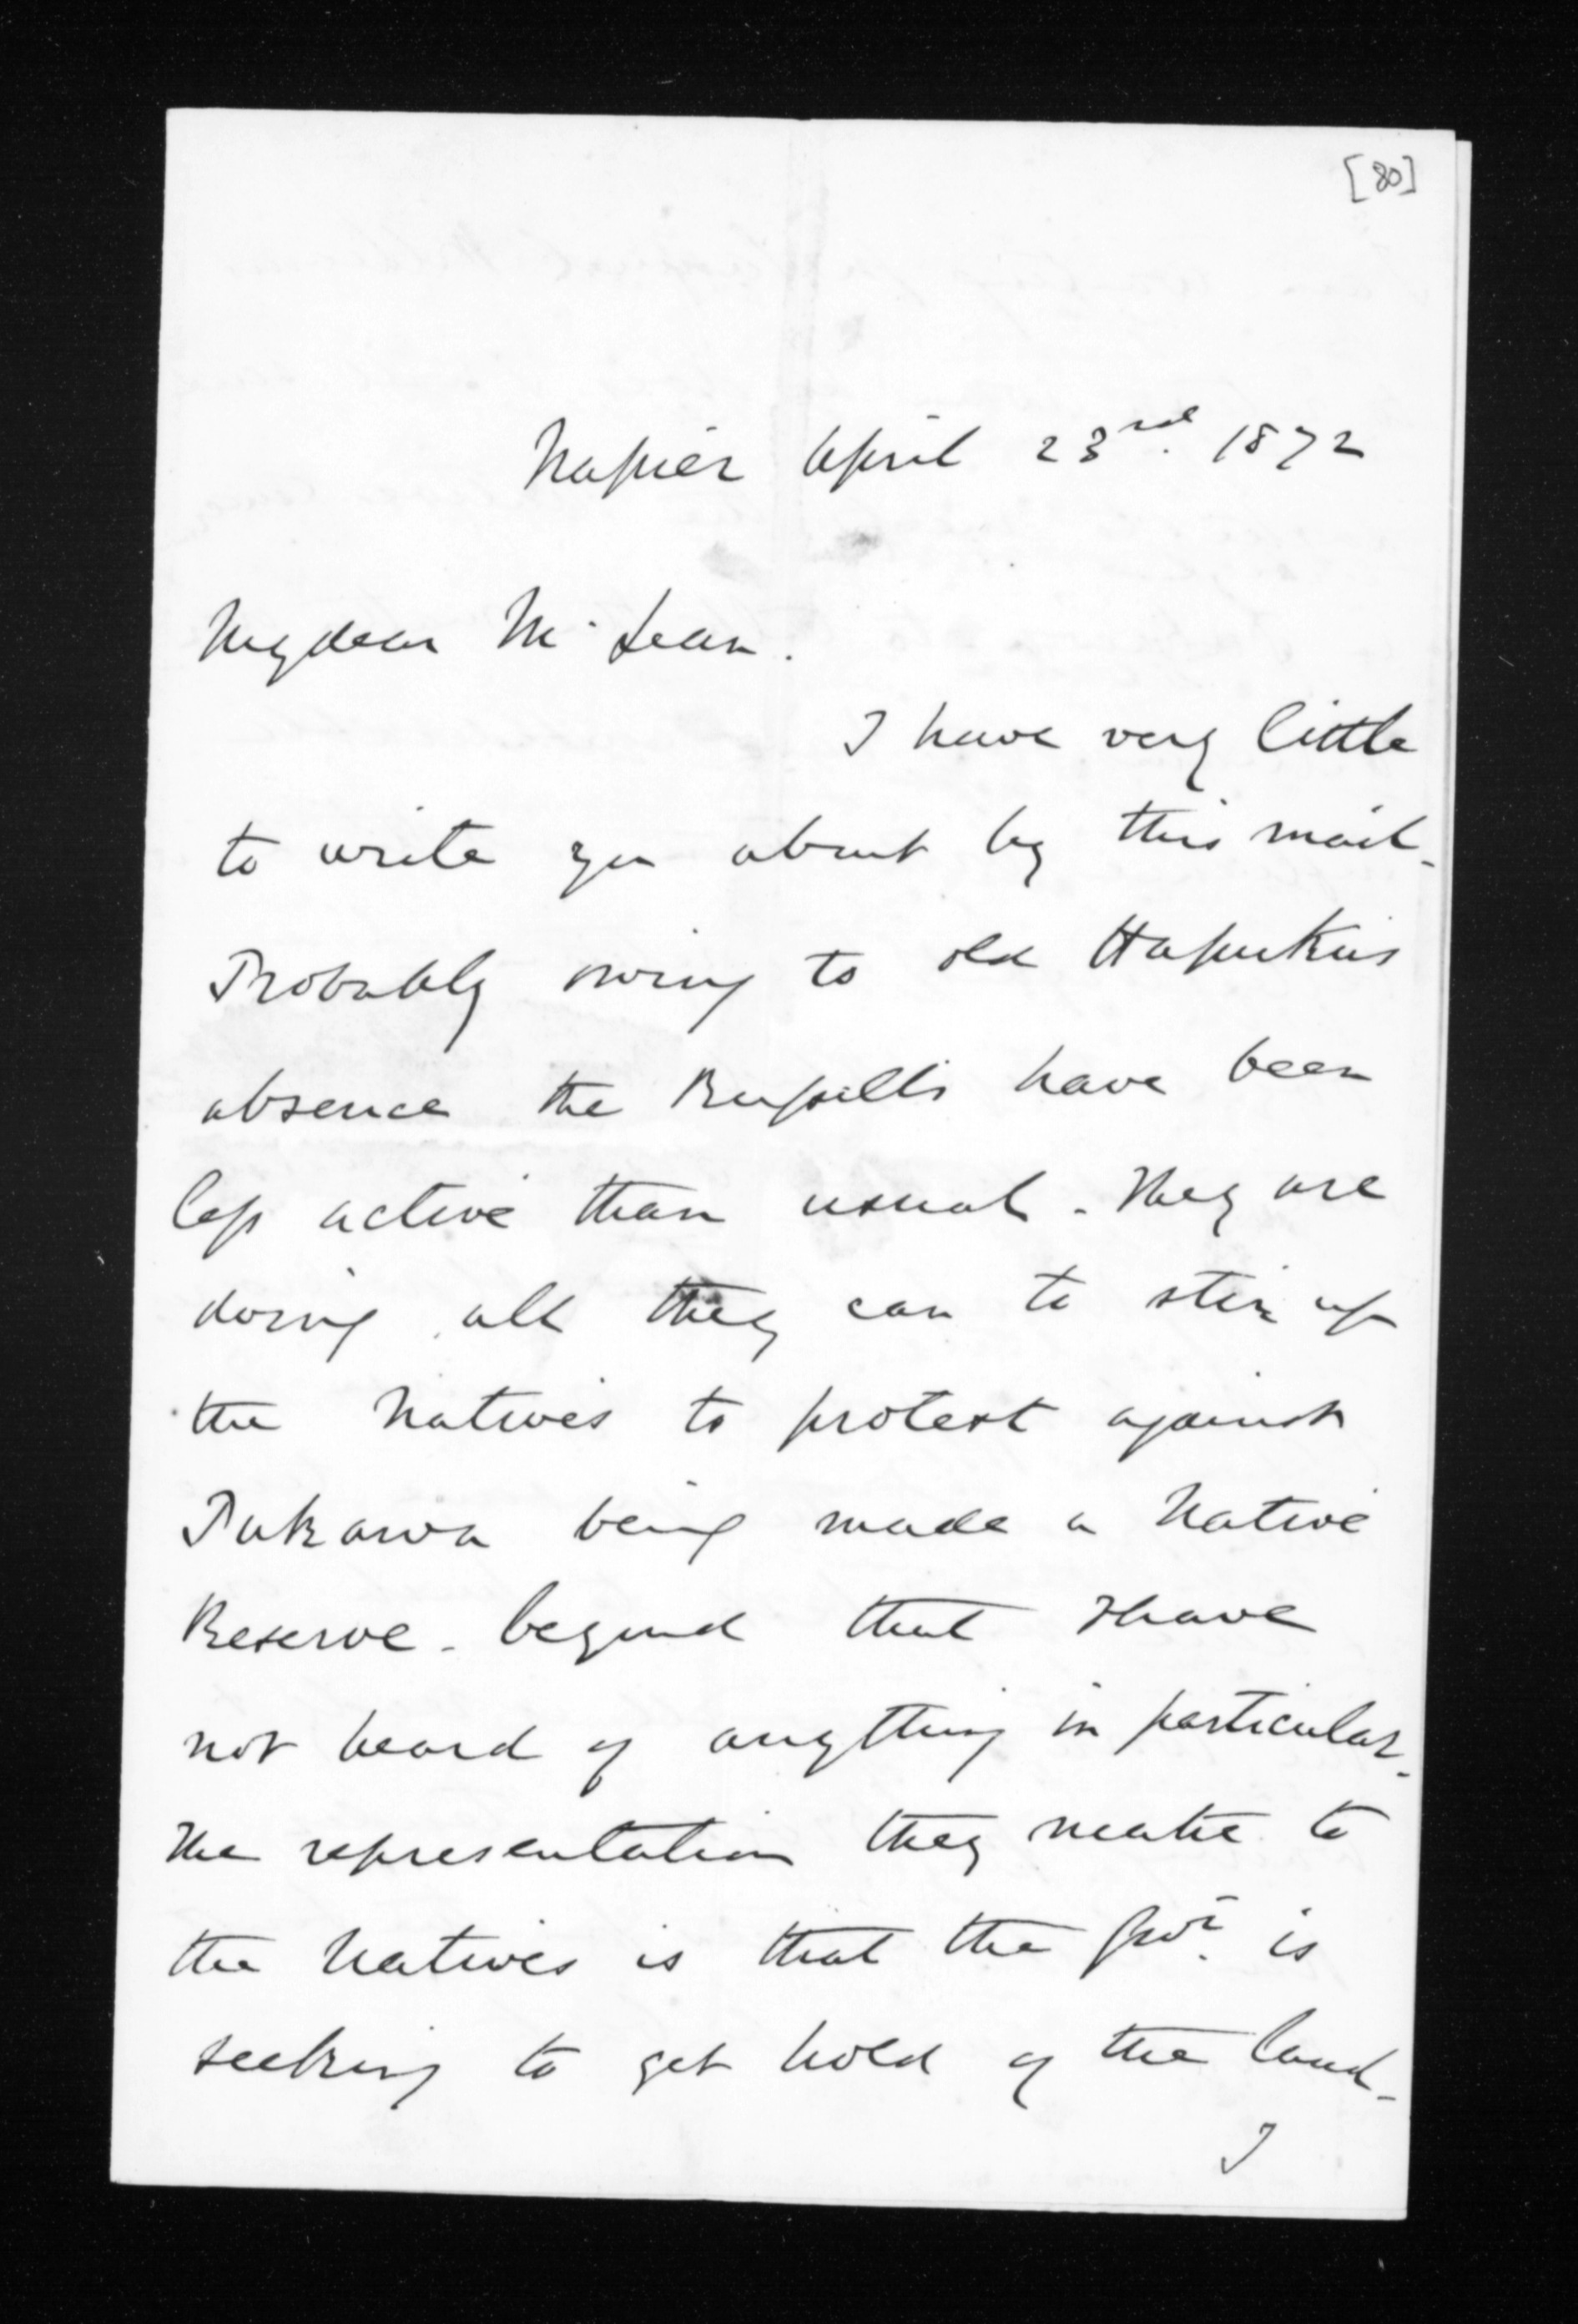 [80]
Napier April 23rd. 1872
My dear McLean.
I have very little
to write you about by this mail.
Probably owing to old Hapukus
absence the Russells have been
less active than usual. They are
doing all they can to stir up
the Natives to protest against
Pakowai being made a Native
Reserve. beyond that I have
not heard of anything in particular.
The representation they make to
the Natives is that the Govt. is
seeking to get hold of the land.
I